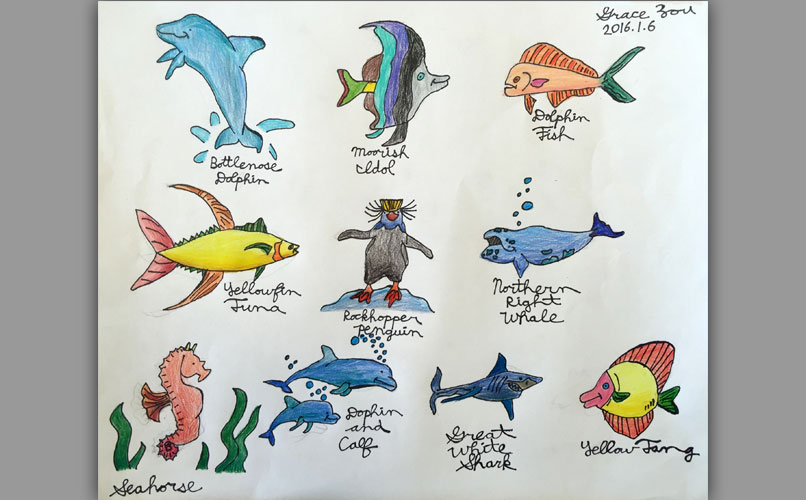 Grace Zou
2016.1.6
Bottlenose
Dolphin
Moorish
Idol
Dolphin
Fish
Yellowfin
Tuna
Rockhopper
Penguin
Northern
Right
Whale
Seahorse
Dophin
and
Calf
Great
White
Shark
Yellow Tang